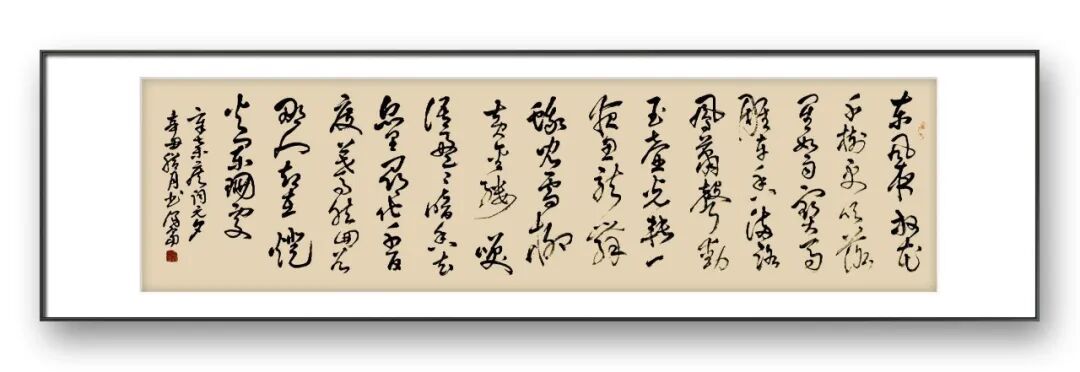 东风夜放花
千树更吹落
星如雨宝马
雕车香满路
凤箫聲動
玉壶光转一
夜鱼龙舞
蛾儿雪柳
黄金缕笑
语盈盈暗香去
众里寻他千百
度蓦然回首
那人却在燈
火阑珊处
辛弃疾词元夕
辛丑腊月书